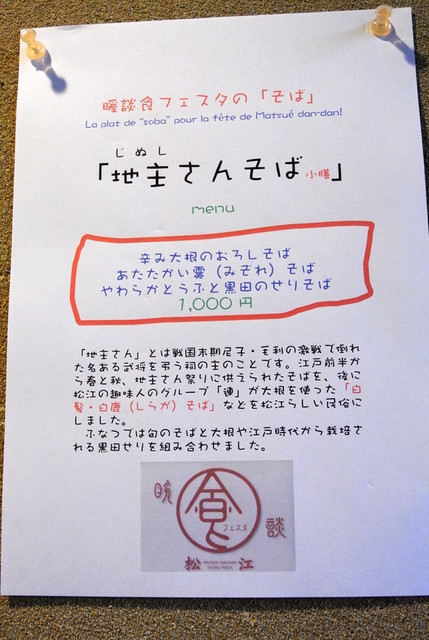 暖談食フェスタの「そば」
La plat de "soba" pour la fête de Matsué dan-dan!
じぬし
「地主さんそば小膳」
menu
辛み大根のおろしそば
あたたかい霙（みぞれ）そば
やわらかとうふと黒田のせりそば
1,000円
「地主さん」とは戦国末期尼子・毛利の激戦で倒れ
た名ある武将を弔う祠の主のことです。江戸前半か
ら春と秋、地主さん祭りに供えられたそばを、後に
松江の趣味人のグループ「連」が大根を使った「白
髪・白鹿（しらが）そば」などを松江らしい民俗に
しました。
ふなつでは旬のそばと大根や江戸時代から栽培さ
れる黒田せりを組み合わせました。
暖
食
フェスタ
談
松江